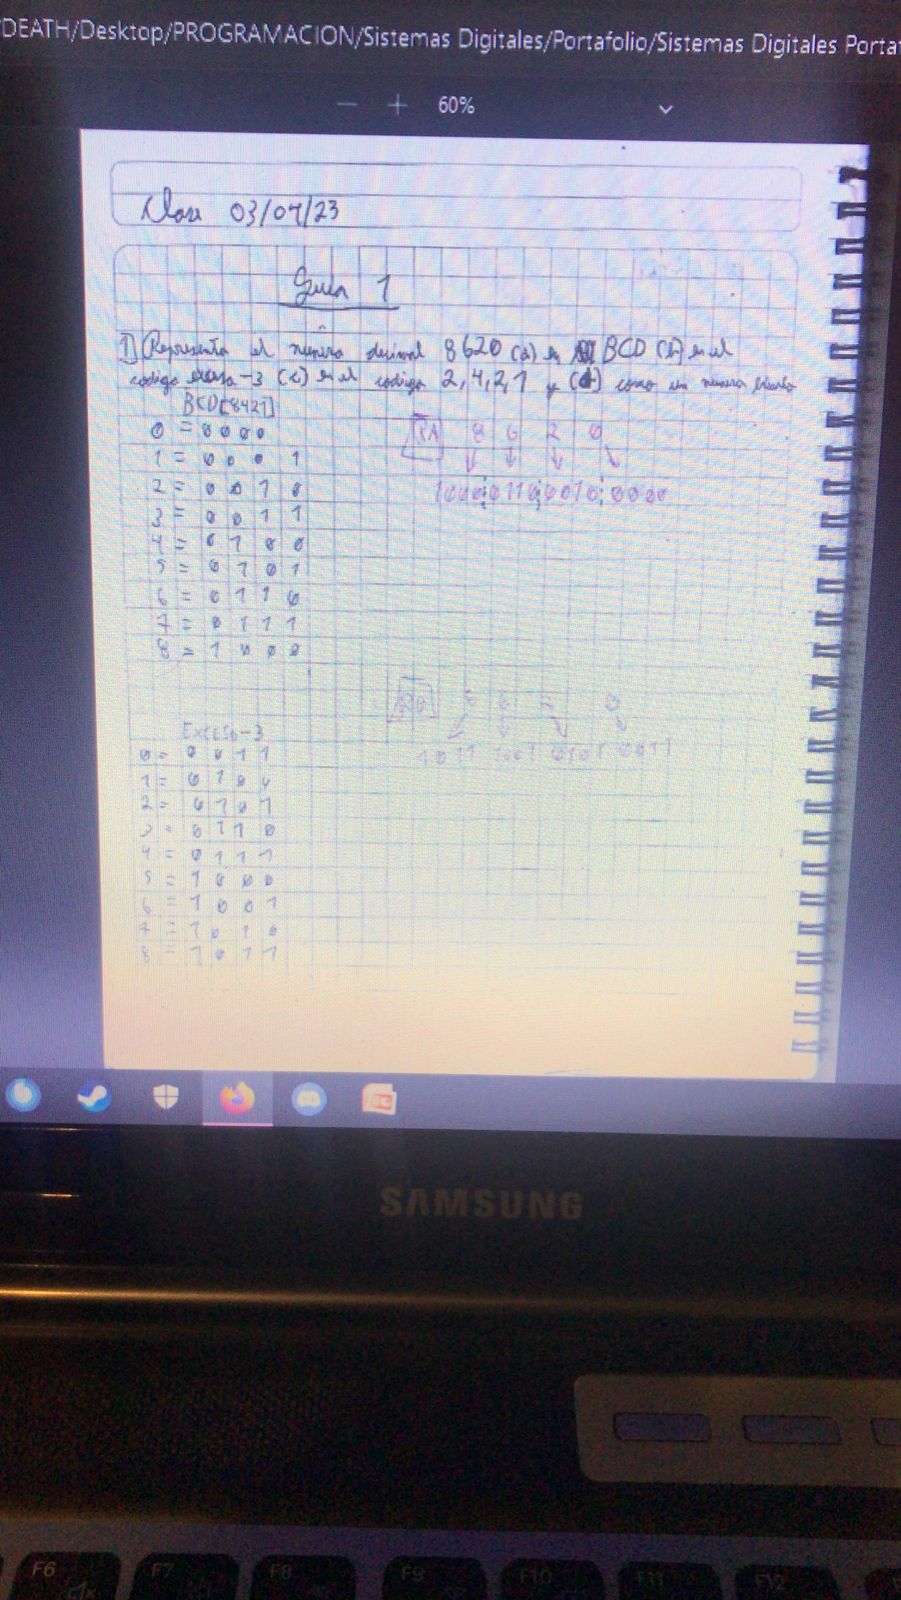 DEATH/Desktop/PROGRAMACION/Sistemas Digitales/Portafolio/Sistemas Digitales Porta
60%
Clase 03/07/23
Guia 1
1) Representa el número decimal 8620 (a) en BCD (b) en el
codigo exceso-3 (c) en el codigo 2,4,2,1 y (d) como un numero binario
BCD[8421]
0 = 0000
RA 8 6 2 0
1 = 0001
2 = 0010
1000;0110;0010;0000
3 = 0011
4 = 0100
5 = 0101
6 = 0110
7 = 0111
8 = 1000
6 2 0
Exceso-3
0 = 0011
1011 1001 0101 0011
1 = 0100
2 = 0101
3 = 0110
4 = 0111
5 = 1000
6 = 1001
7 = 1010
8 = 1011
SAMSUNG
F6 F7 F8 F9 F10 F11 F12